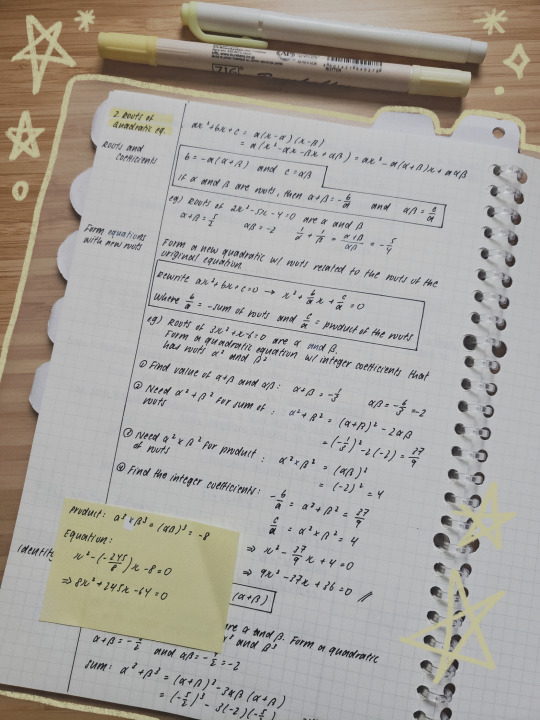 ZIG
2. Roots of
quadratic eq.
Roots and
coefficients
ax² + bx + c = a(x-α)(x-β)
= a(x² - αx - βx + αβ) = ax² - a(α+β)x + aαβ
b = -a(α+β) and c = aαβ
If α and β are roots, then α+β = -b/a and αβ = c/a
eg) Roots of 2x² - 5x - 4 = 0 are α and β
α+β = 5/2 αβ = -2 1/α + 1/β = (α+β)/αβ = -5/4
Form equations
with new roots
Form a new quadratic w/ roots related to the roots of the
original equation.
Rewrite ax² + bx + c = 0 → x² + b/a x + c/a = 0
Where b/a = -sum of roots and c/a = product of the roots
eg) Roots of 3x² + x - 6 = 0 are α and β.
Form a quadratic equation w/ integer coefficients that
has roots α² and β²
① Find value of α+β and αβ: α+β = -1/3 αβ = -6/3 = -2
② Need α² + β² for sum of : α² + β² = (α+β)² - 2αβ
roots
= (-1/3)² - 2(-2) = 37/9
③ Need α² × β² for product : α² × β² = (αβ)²
of roots
= (-2)² = 4
④ Find the integer coefficients: -b/a = α² + β² = 37/9
c/a = α² × β² = 4
⇒ x² - 37/9 x + 4 = 0
⇒ 9x² - 37x + 36 = 0 //
product: α³ × β³ = (αβ)³ = -8
Equation:
x² - (-245/8)x - 8 = 0
⇒ 8x² + 245x - 64 = 0
(α+β)
are α and β. Form a quadratic
α³ and β³
α+β = -5/2 and αβ = -4/2 = -2
sum: α³ + β³ = (α+β)³ - 3αβ(α+β)
= (-5/2)³ - 3(-2)(-5/2)